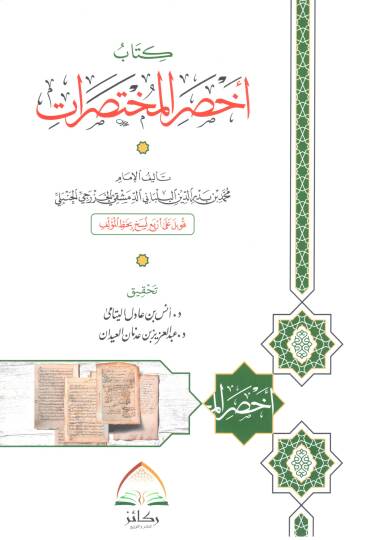 كِتَابُ
أَخْصَرِ المُخْتَصَرَاتِ
تأليف الإمام
محمد بن بدر الدين البلباني الدمشقي الخزرجي الحنبلي
قوبل على أربع نسخ بخط المؤلف
تحقيق
د. أنس بن عادل اليتامى
د. عبدالعزيز بن عدنان العيدان
أخصر الم
ركائز
للنشر والتوزيع